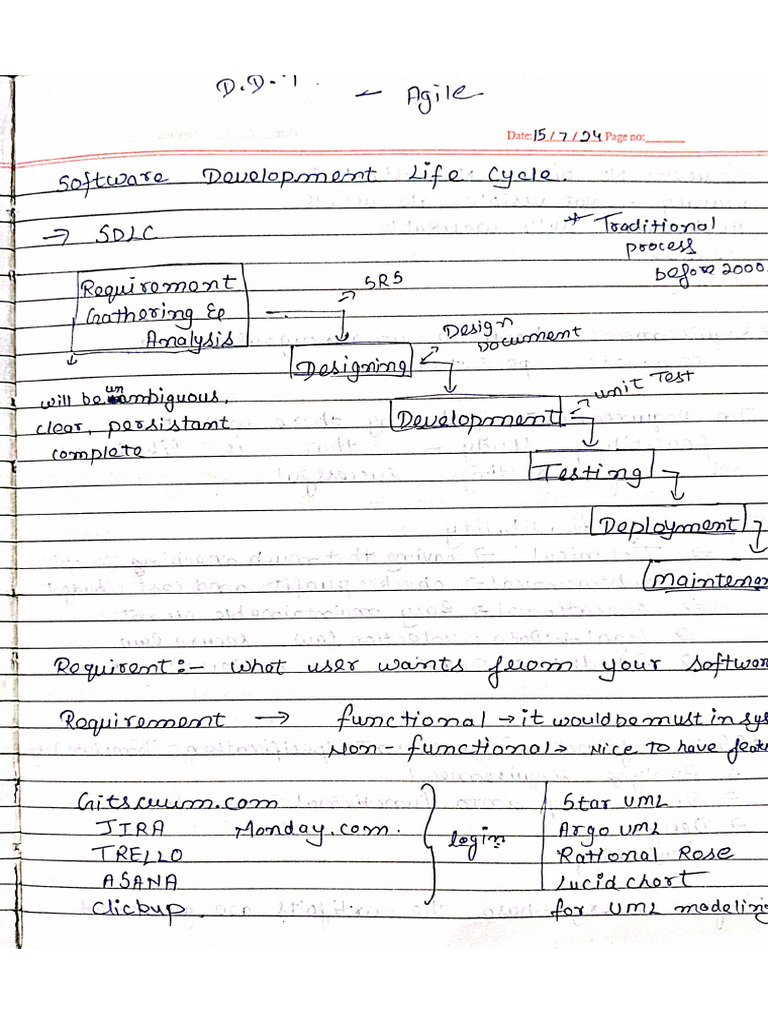 D.D.
- Agile
Date: 15/7/24 Page no:
Software Development Life Cycle.
→ SDLC
* Traditional
process
before 2000.
Requirement
Gathering &
Analysis
SRS
Designing
Design
Document
will be unambiguous,
clear, persistant
complete
Development
unit Test
Testing
Deployment
Maintenen
Requirent:- what user wants from your softwar
Requirement → functional → it would be must in sys
Non-functional → Nice to have feat
Gitscrum.com
JIRA Monday.com.
TRELLO
ASANA
Clicbup.
login
Star UML
Argo UML
Rational Rose
Lucid chart
for UML modeling